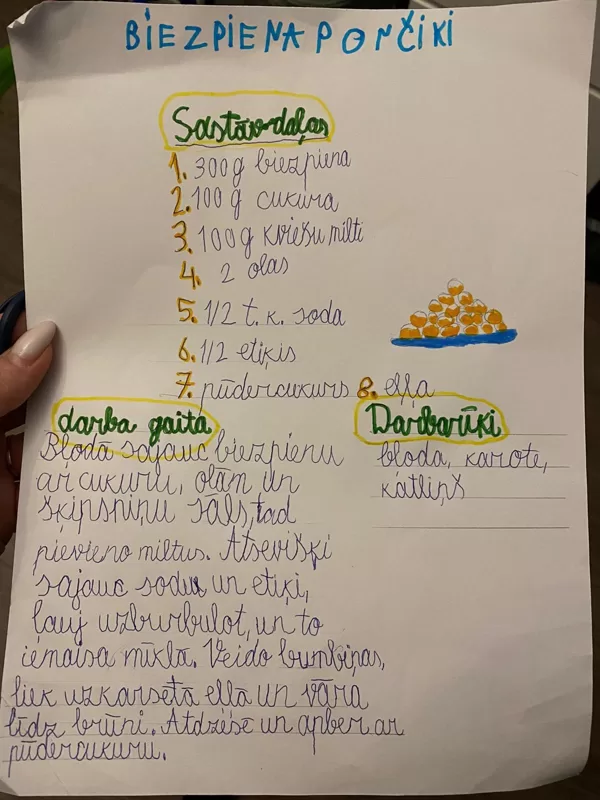 BIEZPIENA PONČIKI
Sastāvdaļas
1. 300g biezpiena
2. 100 g cukura
3. 100g kviešu milti
4. 2 olas
5. 1/2 t. k. soda
6. 1/2 etiķis
7. pūdercukurs 8. eļļa
darba gaita
Bļodā sajauc biezpienu
ar cukuru, olām un
šķipsniņu sāls, tad
pievieno miltus. Atsevišķi
sajauc sodu un etiķi,
ļauj uzburbuļot, un to
iemaisa mīklā. Veido bumbiņas,
liek uzkarsētā eļļā un vāra
līdz brūni. Atdzēsē un apber ar
pūdercukuru.
Darbarīki
bļoda, karote,
katliņš